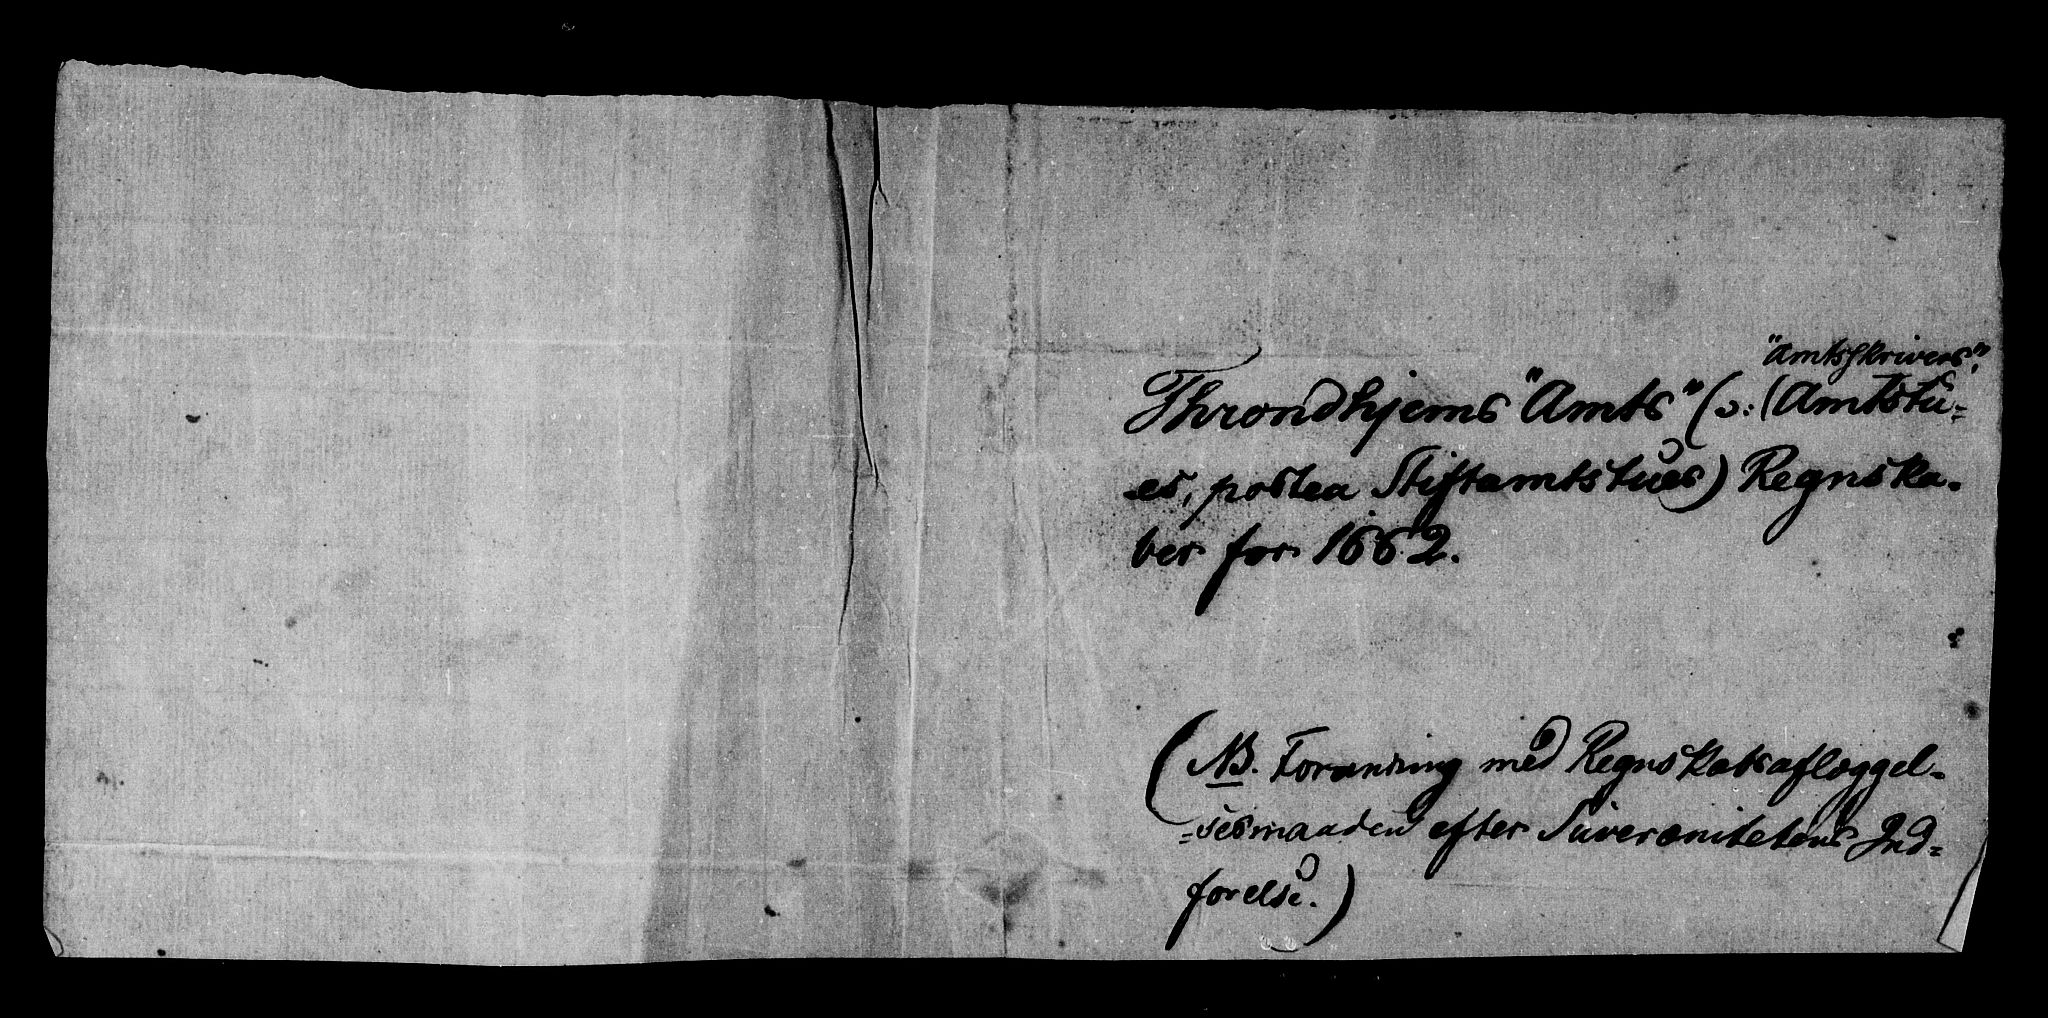 "Amtsskrivers",
Throndhjems "Amts" (ɔ: (Amtstu=
es, postea Stiftamtstues) Regnska-
ber for 1662.
(NB. Forandring med Regnskabsaflæggel-
=sesmaaden efter Suverænitetens Ind=
førelse.)